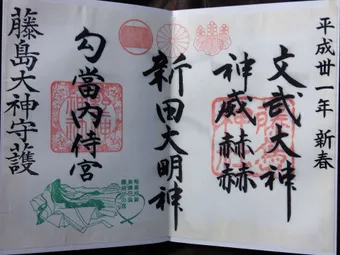 平成丗一年 新春
文武大神
神威赫赫
新田大明神
勾當内侍宮
藤島大神守護